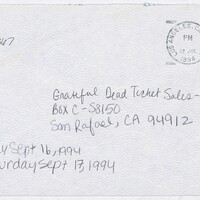 LOS ANGELES, C
PM
1994
Grateful Dead Ticket Sales -
Box C-S8150
San Rafael, CA 94912
ay Sept 16, 1994
turday Sept 17, 1994